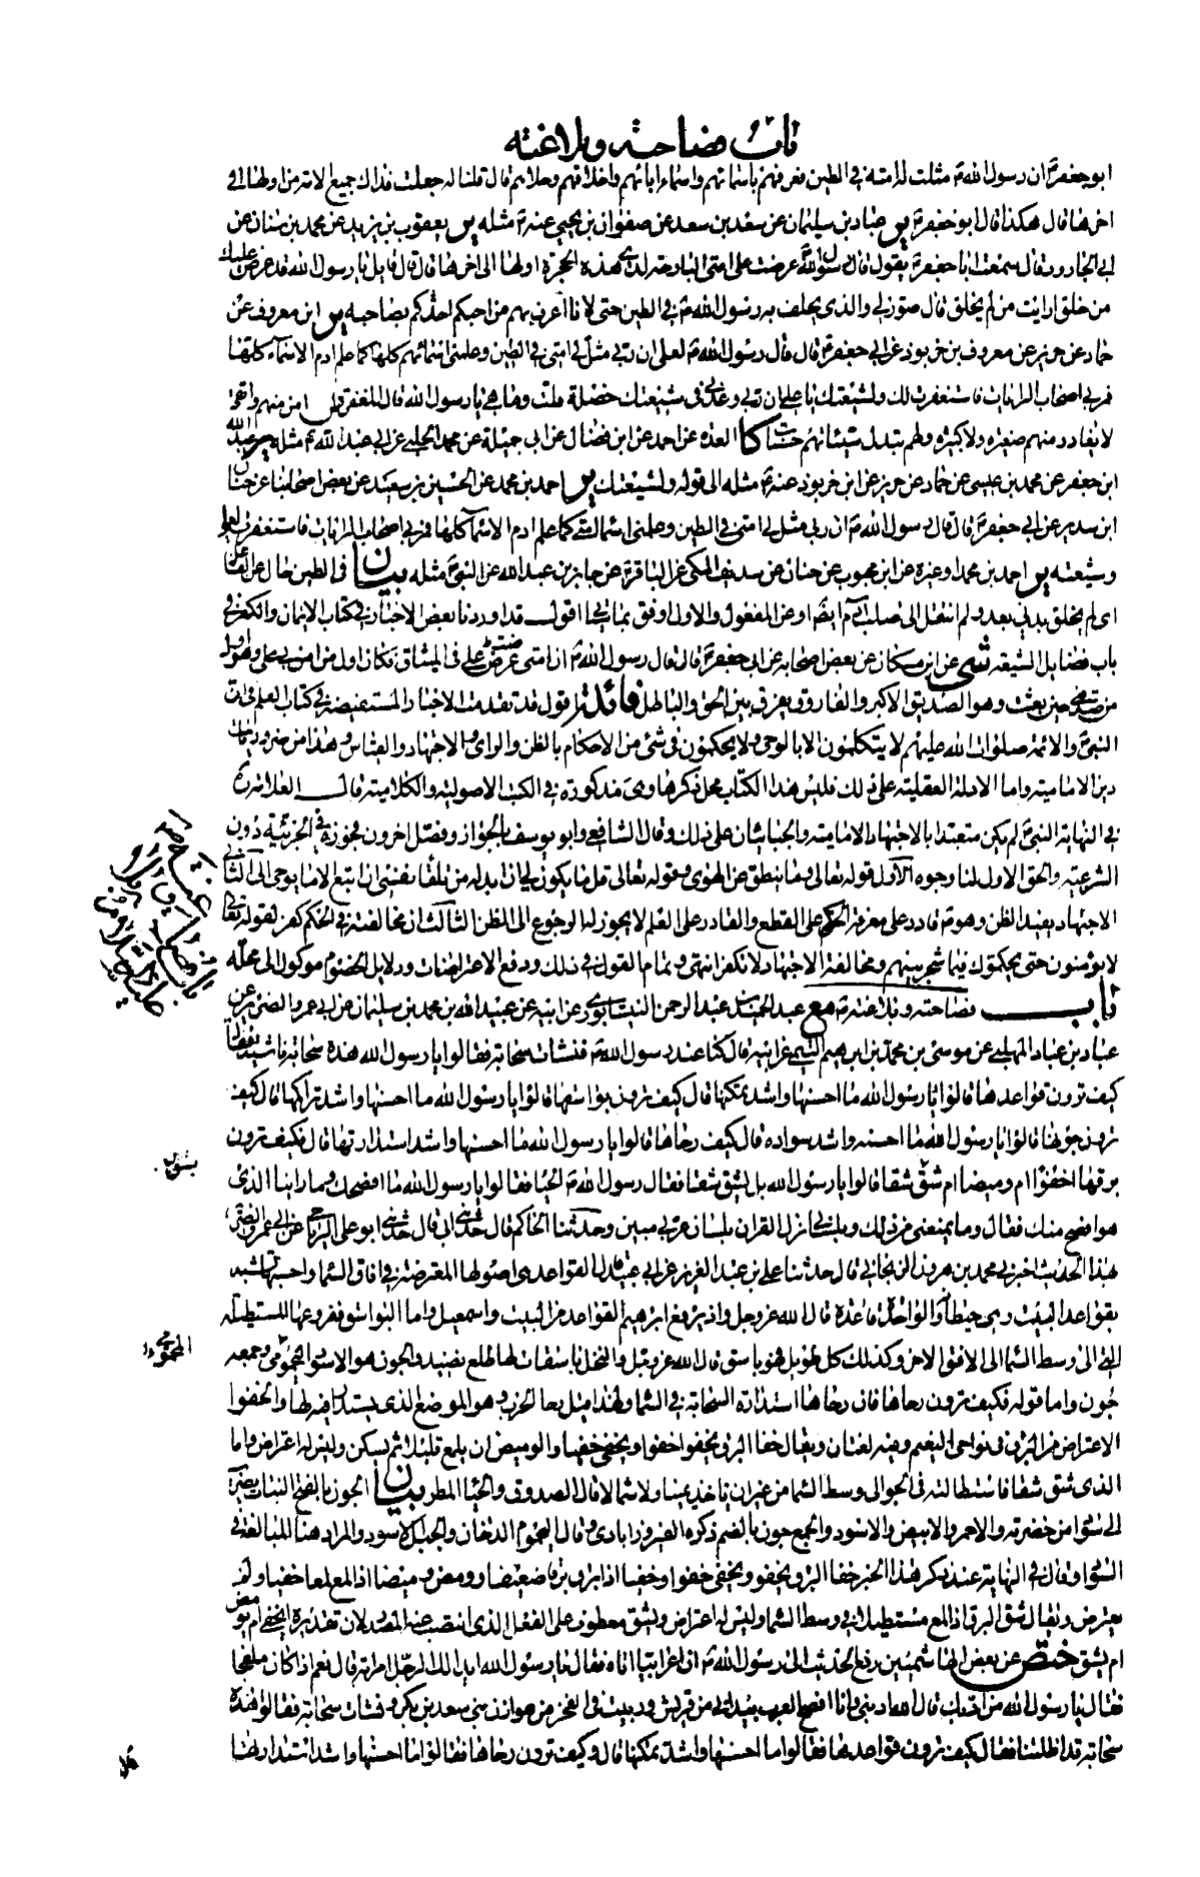 باب فصاحته وبلاغته
ابو جعفر ع ان رسول الله ص مثلت له امته في الطين فعرفهم باسمائهم واسماء ابائهم واخلاقهم وحلاهم قال قلنا له جعلت فداك جميع الامة من اولها الى
اخرها قال هكذا قال ابو جعفر ع ير عباد بن سليمان عن سعد بن سعد عن صفوان بن يحيى عنه ع مثله ير يعقوب بن يزيد عن محمد بن سنان عن
ابي الجارود قال سمعت ابا جعفر ع يقول قال رسول الله ص عرضت على امتي البارحة لدى هذه الحجرة اولها الى اخرها قال قال قايل يا رسول الله قد عرض عليك
من خلق ارايت من لم يخلق قال صور لي والذي يحلف به رسول الله ص في الطين حتى لانا اعرف بهم من احدكم بصاحبه ير ابن معروف عن
حماد عن حريز عن معروف بن خربوذ عن ابي جعفر ع قال قال رسول الله ص لعلي ان ربي مثل لي امتي في الطين وعلمني اسمائهم كلها كما علم ادم الاسماء كلها
فمر بي اصحاب الرايات فاستغفرت لك ولشيعتك يا علي ان ربي وعدني في شيعتك خصلة قلت وما هي يا رسول الله قال المغفرة لمن امن منهم واتقى
لا يغادر منهم صغيرة ولا كبيرة ولهم تبدل سيئاتهم حسنات كا العدة عن احمد عن ابن فضال عن ابي جميلة عن محمد الحلبي عن ابي عبد الله ع مثله ير عبد الله
ابن جعفر عن محمد بن عيسى عن حماد عن حريز عن ابن خربوذ عنه ع مثله الى قوله ولشيعتك ير احمد بن محمد عن الحسين بن سعيد عن بعض اصحابنا عن حنان
ابن سدير عن ابي جعفر ع قال قال رسول الله ص ان ربي مثل لي امتي في الطين وعلمني اسمائهم كما علم ادم الاسماء كلها فمر بي اصحاب الرايات فاستغفرت لعلي
وشيعته ير احمد بن محمد او غيره عن ابن محبوب عن حنان عن سديف المكي عن الباقر ع عن جابر بن عبد الله عن النبي ص مثله بيان في الطين حال عن الفاعل
اي لم يخلق بدني بعد ولم انتقل الى صلب ادم ايضا او عن المفعول والاول اوفق بما ياتي اقول قد اوردنا بعض الاخبار في كتاب الايمان والكفر في
باب فضايل الشيعة شي عن ابن مسكان عن بعض اصحابه عن ابي جعفر ع قال قال رسول الله ص ان امتي عرضت علي في الميثاق فكان اول من امن بي علي وهو اول
من صدقني حين بعثت وهو الصديق الاكبر والفاروق يفرق بين الحق والباطل فائدة اقول قد تقدمت الاخبار المستفيضة في كتاب العلم في ان
النبي والائمة صلوات الله عليهم لا يتكلمون الا بالوحي ولا يحكمون في شئ من الاحكام بالظن والراي والاجتهاد والقياس وهذا من ضروريات
دين الامامية واما الادلة العقلية على ذلك فليس هذا الكتاب محل ذكرها وهي مذكورة في الكتب الاصولية والكلامية قال العلامة ره
في النهاية النبي ص لم يكن متعبدا بالاجتهاد الامامية والجبائيان على ذلك وقال الشافعي وابو يوسف بالجواز وفصل اخرون فجوزه في الحربية دون
الشرعية والحق الاول لنا وجوه الاول قوله تعالى وما ينطق عن الهوى وقوله تعالى قل ما يكون لي ان ابدله من تلقاء نفسي ان اتبع الا ما يوحى الي الثاني
الاجتهاد يفيد الظن وهو ص قادر على معرفة الحكم على القطع والقادر على العلم لا يجوز له الرجوع الى الظن الثالث ان مخالفته في الحكم كفر لقوله تعالى
لا يؤمنون حتى يحكموك فيما شجر بينهم ومخالفة الاجتهاد لا تكفر انتهى وتمام القول في ذلك ودفع الاعتراضات ودلايل الخصوم موكول الى محله
باب فصاحته وبلاغته ص مع عبد الحميد بن عبد الرحمن النيسابوري عن ابيه عن عبيد الله بن محمد بن سليمان عن ابي عمرو الضرير عن
عباد بن عباد المهلبي عن موسى بن محمد بن ابراهيم التيمي عن ابيه قال كنا عند رسول الله ص فنشات سحابة فقالوا يا رسول الله هذه سحابة ناشية فقال
كيف ترون قواعدها قالوا يا رسول الله ما احسنها واشد تمكنها قال كيف ترون بواسقها قالوا يا رسول الله ما احسنها واشد تراكمها قال كيف
ترون جونها قالوا يا رسول الله ما احسنه واشد سواده قال كيف رحاها قالوا يا رسول الله ما احسنها واشد استدارتها قال فكيف ترون
برقها اخفوا ام وميضا ام شق شقا قالوا يا رسول الله بل يشق شقا فقال رسول الله ص الحيا فقالوا يا رسول الله ما افصحك وما راينا الذي
هو افصح منك فقال وما يمنعني من ذلك وبلساني نزل القران بلسان عربي مبين وحدثنا الحاكم قال حدثني ابي قال حدثني ابو علي الرياحي عن ابي عمرو الضرير
بهذا الحديث اخبرني محمد بن هرون الزنجاني قال حدثنا علي بن عبد العزيز عن ابي عبيد قال القواعد هي اصولها المعترضة في افاق السماء واحسبها تشبه
بقواعد البيت وهي حيطانه والواحدة قاعدة قال الله عز وجل واذ يرفع ابراهيم القواعد من البيت واسمعيل واما البواسق ففروعها المستطيلة
التي الى وسط السماء الى الافق الاخر وكذلك كل طويل فهو باسق قال الله عز وجل والنخل باسقات لها طلع نضيد والجون هو الاسود اليحمومي وجمعه
جون واما قوله فكيف ترون رحاها فان رحاها استدارة السحابة في السماء ولهذا قيل رحا الحرب وهو الموضع الذي يستدار فيه لها والخفو
الاعتراض من البرق في نواحي الغيم وفيه لغتان ويقال خفا البرق يخفو خفوا ويخفي خفيا والوميض ان يلمع قليلا ثم يسكن وليس له اعتراض واما
الذي شق شقا فاستطالته في الجو الى وسط السماء من غير ان ياخذ يمينا ولا شمالا قال الصدوق والحيا المطر بيان الجون بالفتح النبات يضرب
الى سواد من خضرته والاحمر والابيض والاسود والجمع جون بالضم ذكره الفيروزابادي وقال اليحموم الدخان والجبل الاسود والمراد هنا المبالغة في
السواد وقال في النهاية عند ذكر هذا الخبر خفا البرق يخفو ويخفي خفوا وخفيا اذا برق برقا ضعيفا وومض وميضا اذا لمع لمعا خفيا ولم
يعترض ويقال شق البرق اذا لمع مستطيلا الى وسط السماء وليس له اعتراض ويشق معطوف على الفعل الذي انتصب عنه المصدر لان تقديره ايخفي ام يومض
ام يشق ختص عن بعض الهاشميين رفع الحديث الى رسول الله ص ان اعرابيا اتاه فقال يا رسول الله ايدالك الرجل امراته قال نعم اذا كان ملفجا
فقال يا رسول الله من ادبك قال الله ادبني وانا افصح العرب بيد اني من قريش وربيت في الفخر من هوازن بني سعد بن بكر ونشات سحابة فقالوا هذه
سحابة قد اظلتنا فقال كيف ترون قواعدها فقالوا ما احسنها واشد تمكنها قال وكيف ترون رحاها فقالوا ما احسنها واشد استدارتها